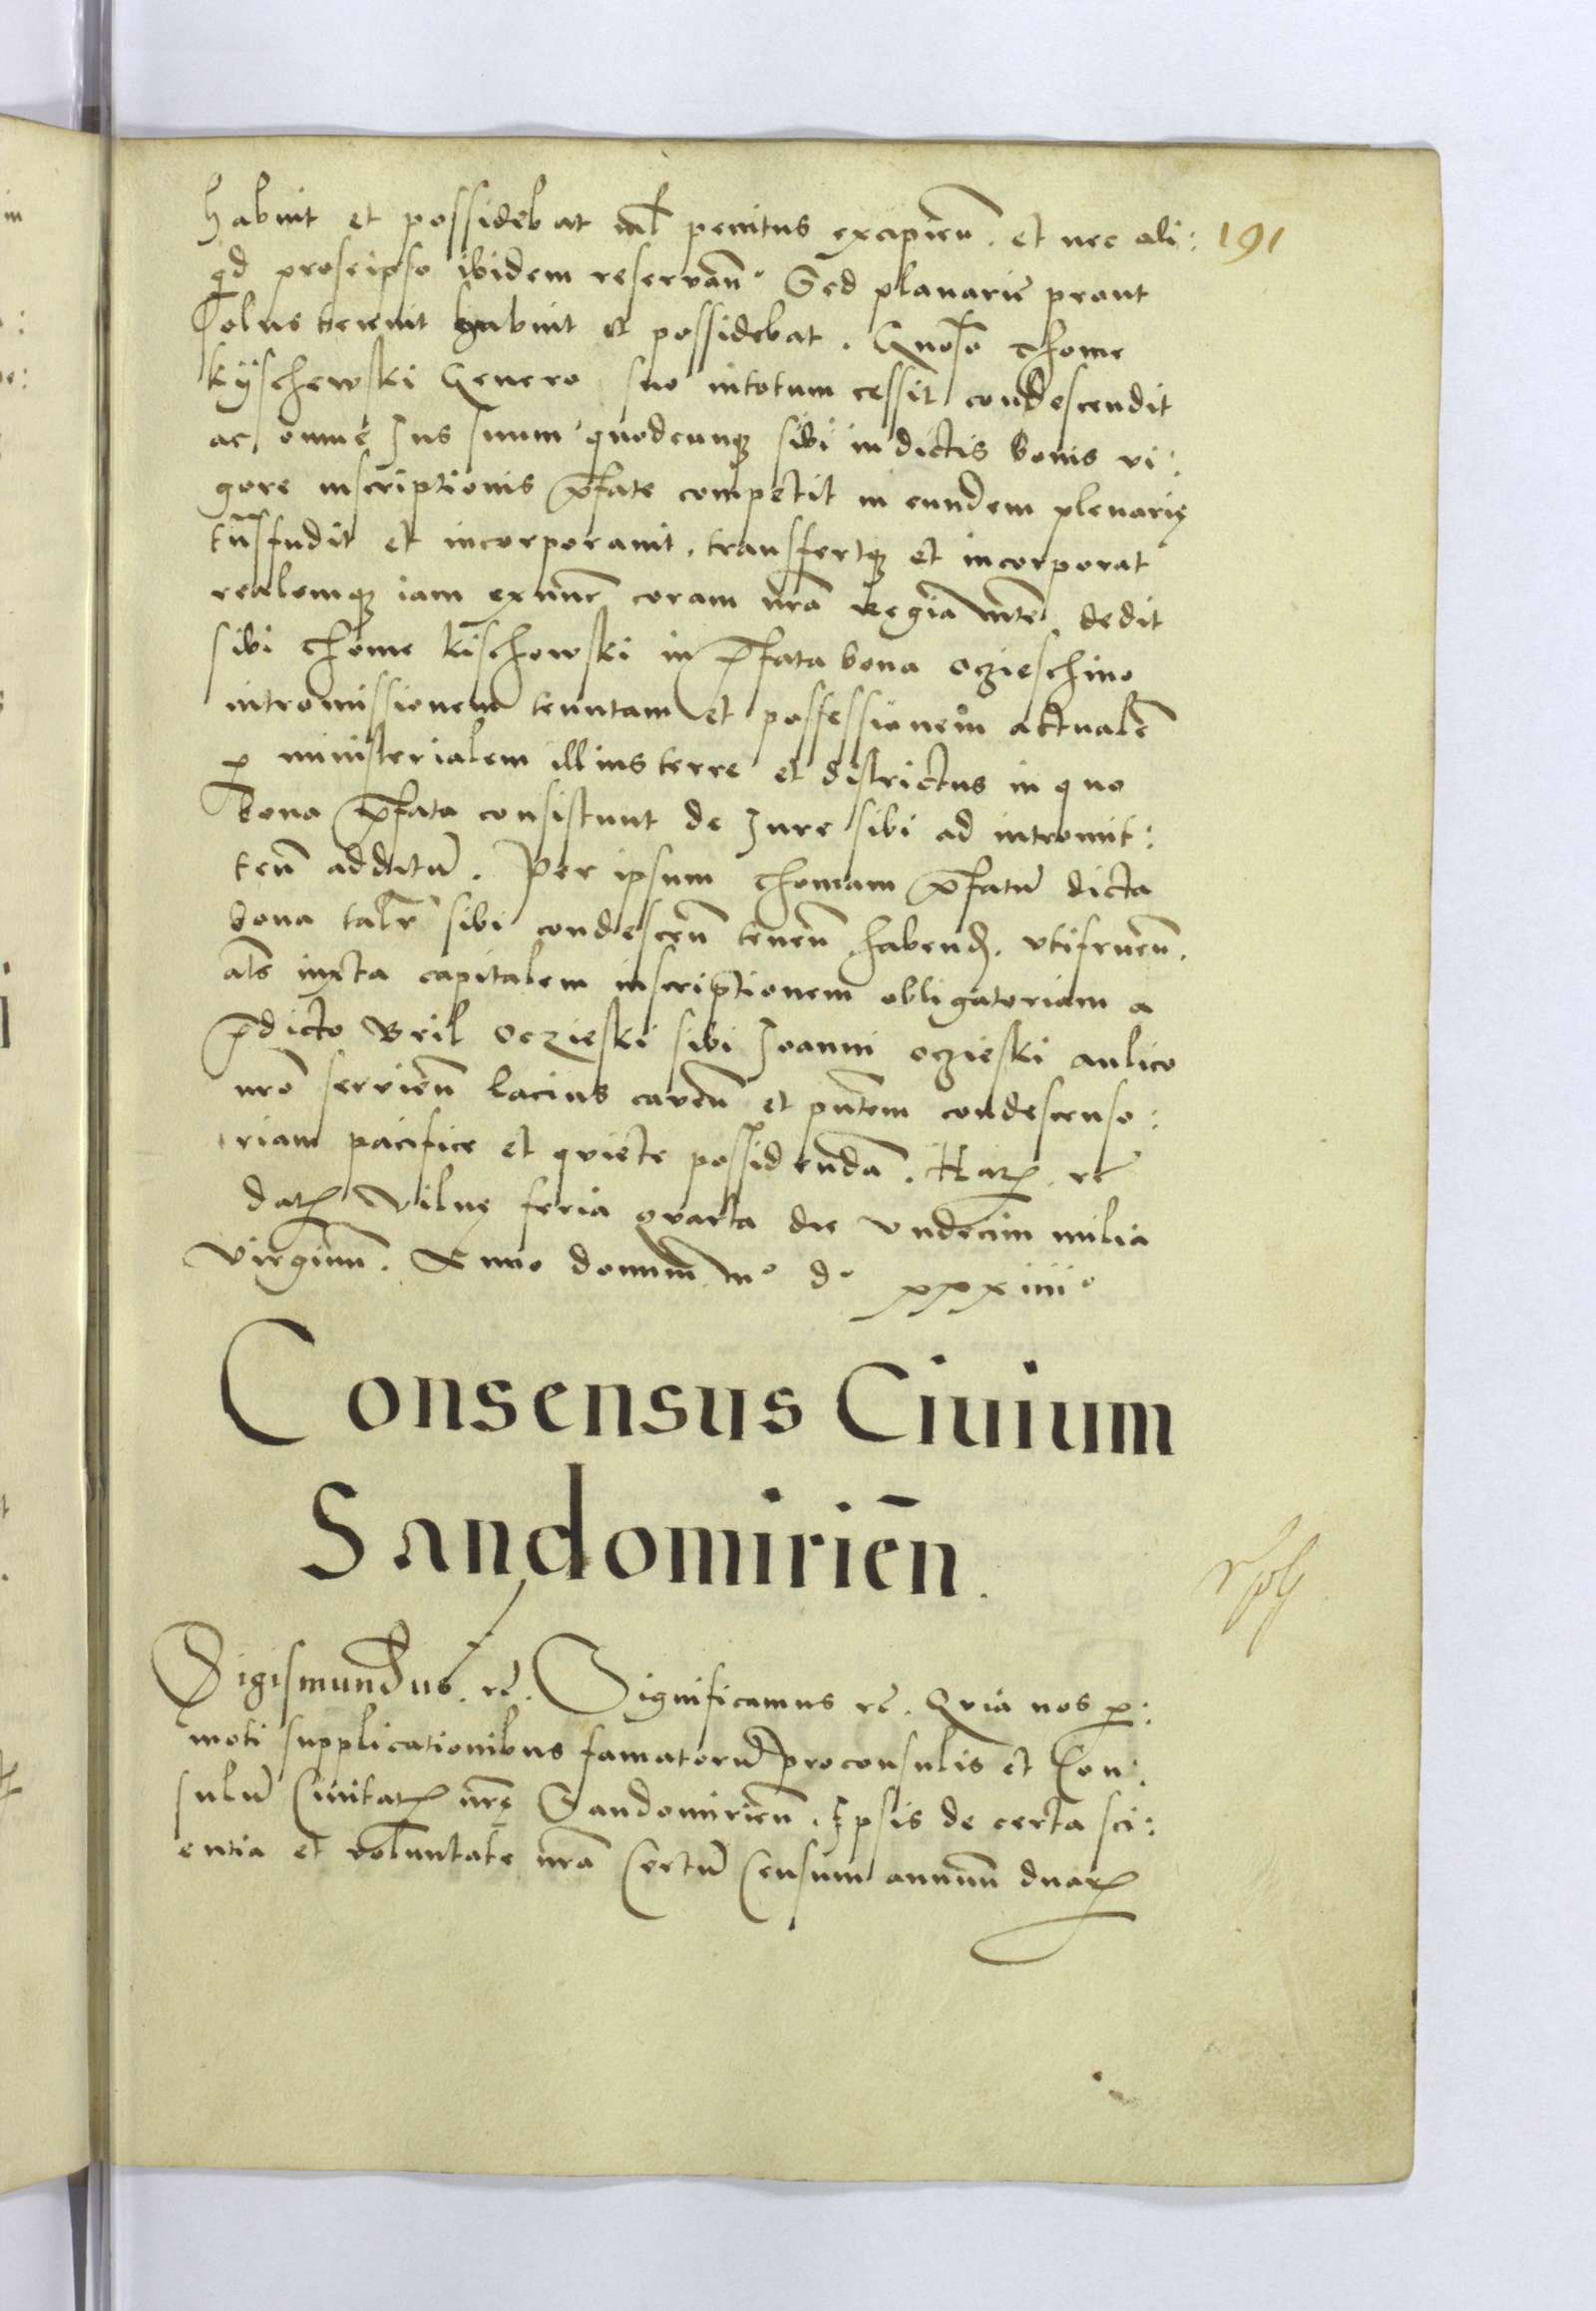 habuit et possidebat nil penitus excipien̄. et nec ali: 191
qd proseipso ibidem reservan̄. Sed planarie prout
solus tenuit habuit et possidebat. Gnoso Thome
Kÿschewski Genero suo intotum cessit condescendit
ac omne Jus suum quodcunqȝ sibi in dictis bonis vi:
gore inscriptionis p̄fate competit in eundem plenarię
tn̄sfudit et incorporavit. transfertqȝ et incorporat
realemqȝ iam exnunc coram nrā Regia mte dedit
sibi Thome Kischowski in p̄fata bona oczieschino
intromissionem tenutam et possessionem actualē
p ministerialem illius terre et districtus in quo
bona p̄fata consistunt de Jure sibi ad intromit:
ten̄ additū. Per ipsum Thomam p̄fatū dicta
bona talr̄ sibi condescen̄ tenen̄ habend. vtifruen̄.
alr̄s iuxta capitalem inscriptionem obligatoriam a
p̄dicto Bril Oczieski sibi Joanni oczieski aulico
nrō servien̄ lacius caven̄ et pn̄tem condescenso:
riam pacifice et quiete possidendā. Harꝝ rc̄
datꝝ Vilnę feria qvarta die vndecim milia
virginū. Anno domini mº dº xxxiiiiº
Consensus Ciuium
Sandomirień.
Sigismundus. rc̄. Significamus rc̄. Qvia nos p:
moti supplicationibus famatorū proconsulis et Con:
sulū Civitatꝭ nrę̄ Sandomirien̄. Ipsis de certa sci:
entia et voluntate nrā Certū Censum annuū duarꝝ